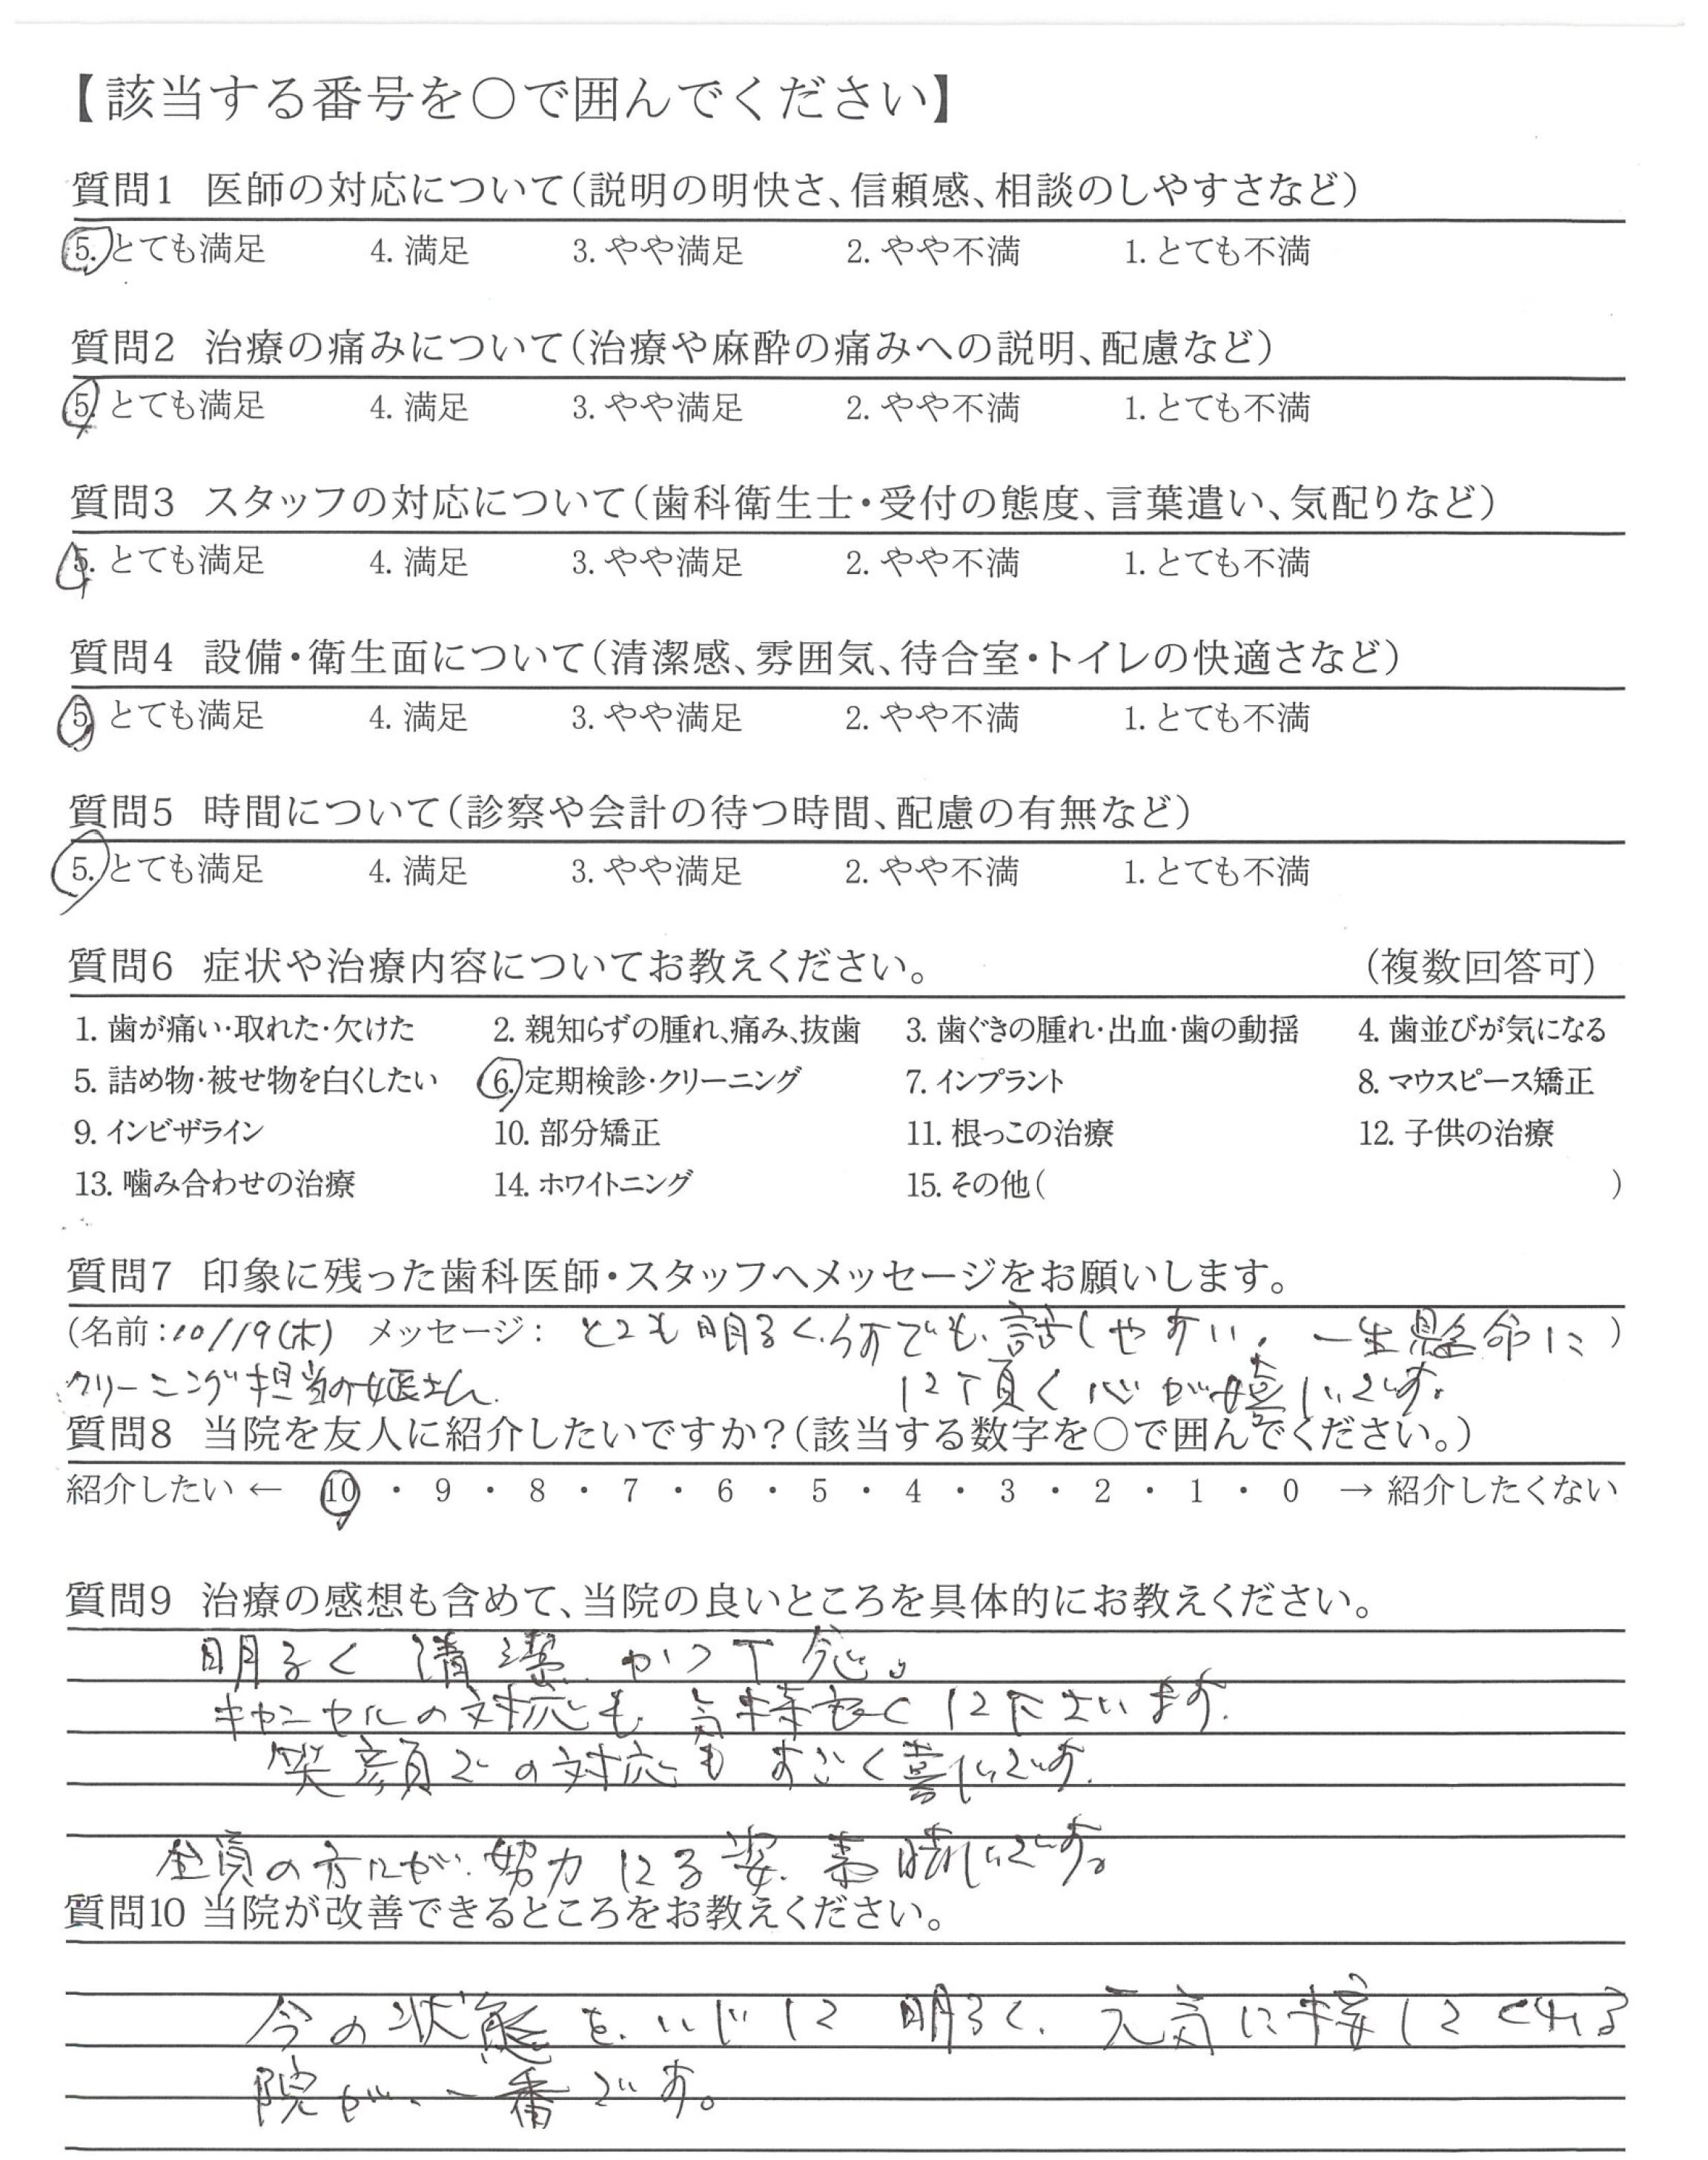 【該当する番号を○で囲んでください】
質問1 医師の対応について(説明の明快さ、信頼感、相談のしやすさなど)
5. とても満足 4. 満足 3. やや満足 2. やや不満 1. とても不満
質問2 治療の痛みについて(治療や麻酔の痛みへの説明、配慮など)
5. とても満足 4. 満足 3. やや満足 2. やや不満 1. とても不満
質問3 スタッフの対応について(歯科衛生士・受付の態度、言葉遣い、気配りなど)
5. とても満足 4. 満足 3. やや満足 2. やや不満 1. とても不満
質問4 設備・衛生面について(清潔感、雰囲気、待合室・トイレの快適さなど)
5. とても満足 4. 満足 3. やや満足 2. やや不満 1. とても不満
質問5 時間について(診察や会計の待つ時間、配慮の有無など)
5. とても満足 4. 満足 3. やや満足 2. やや不満 1. とても不満
質問6 症状や治療内容についてお教えください。 (複数回答可)
1. 歯が痛い・取れた・欠けた 2. 親知らずの腫れ、痛み、抜歯 3. 歯ぐきの腫れ・出血・歯の動揺 4. 歯並びが気になる
5. 詰め物・被せ物を白くしたい 6. 定期検診・クリーニング 7. インプラント 8. マウスピース矯正
9. インビザライン 10. 部分矯正 11. 根っこの治療 12. 子供の治療
13. 噛み合わせの治療 14. ホワイトニング 15. その他( )
質問7 印象に残った歯科医師・スタッフへメッセージをお願いします。
(名前:10/19(木) メッセージ: とても明るく、何でも、話しやすい。一生懸命に)
クリーニング担当のお姉さん。 して頂く 心が嬉しいです。
質問8 当院を友人に紹介したいですか?(該当する数字を○で囲んでください。)
紹介したい ← 10 ・ 9 ・ 8 ・ 7 ・ 6 ・ 5 ・ 4 ・ 3 ・ 2 ・ 1 ・ 0 → 紹介したくない
質問9 治療の感想も含めて、当院の良いところを具体的にお教えください。
明るく 清潔 かつ丁
キャンセルの対応も 気持良く して下さいます。
笑顔での対応も すごく喜しいです。
全員の方々が、努力してる姿、素晴しいです。
質問10 当院が改善できるところをお教えください。
今の状態を、いじして 明るく、元気に接してくれる
院が、一番です。